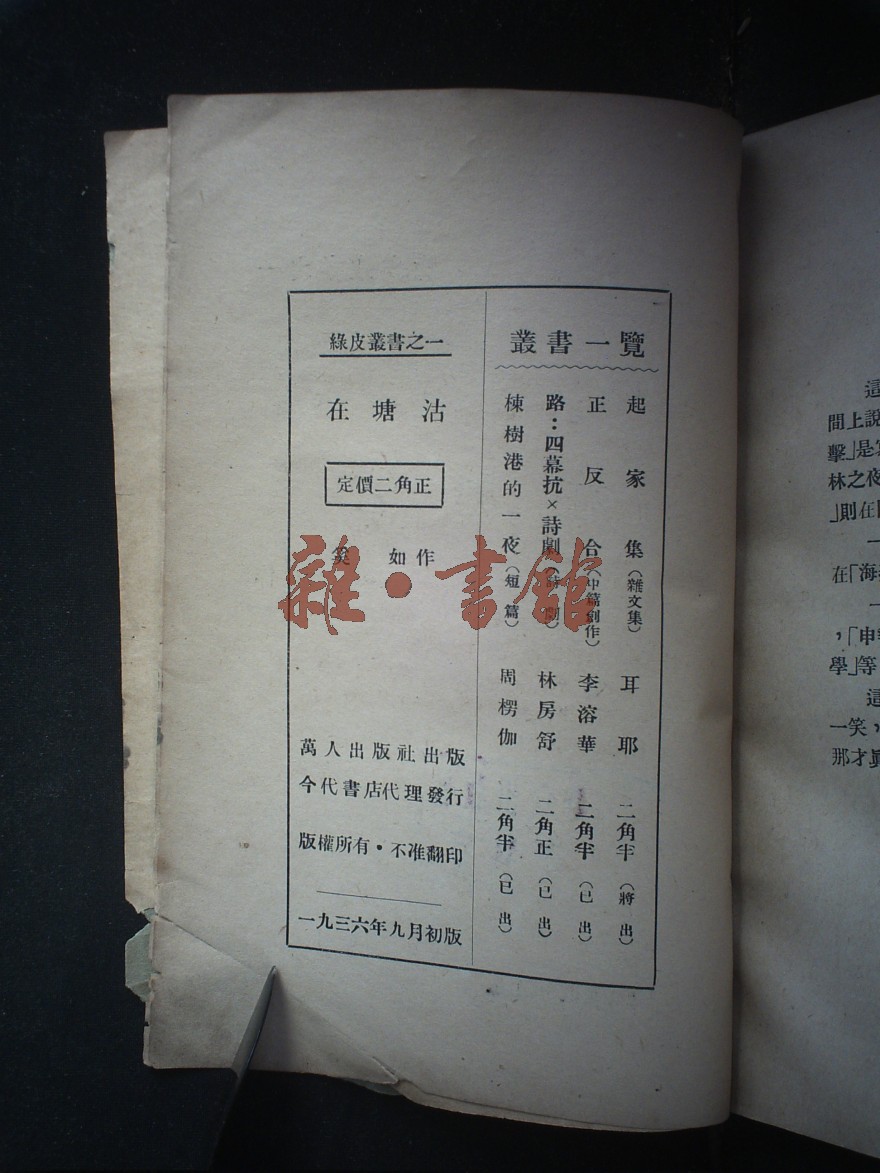 叢書一覽
起家集(雜文集) 耳耶 二角半(將出)
正反合(中篇創作) 李溶華 二角半(已出)
路:四幕抗×詩劇(詩劇) 林房舒 二角正(已出)
棟樹港的一夜(短篇) 周楞伽 二角半(已出)
綠皮叢書之一
在塘沽
定價二角正
奚如作
萬人出版社出版
今代書店代理發行
版權所有·不准翻印
一九三六年九月初版
雜·書館
這
間上說
擊」是
林之夜
」則在
一
在「海
一
,「申
學」等
這
一笑,
那才眞